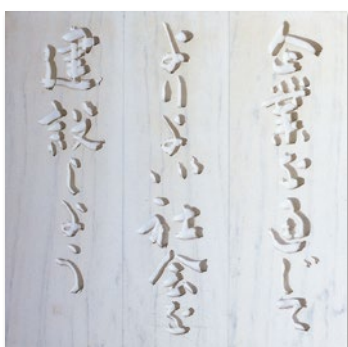 会議を通じて
よりよい社会を
建設しよう